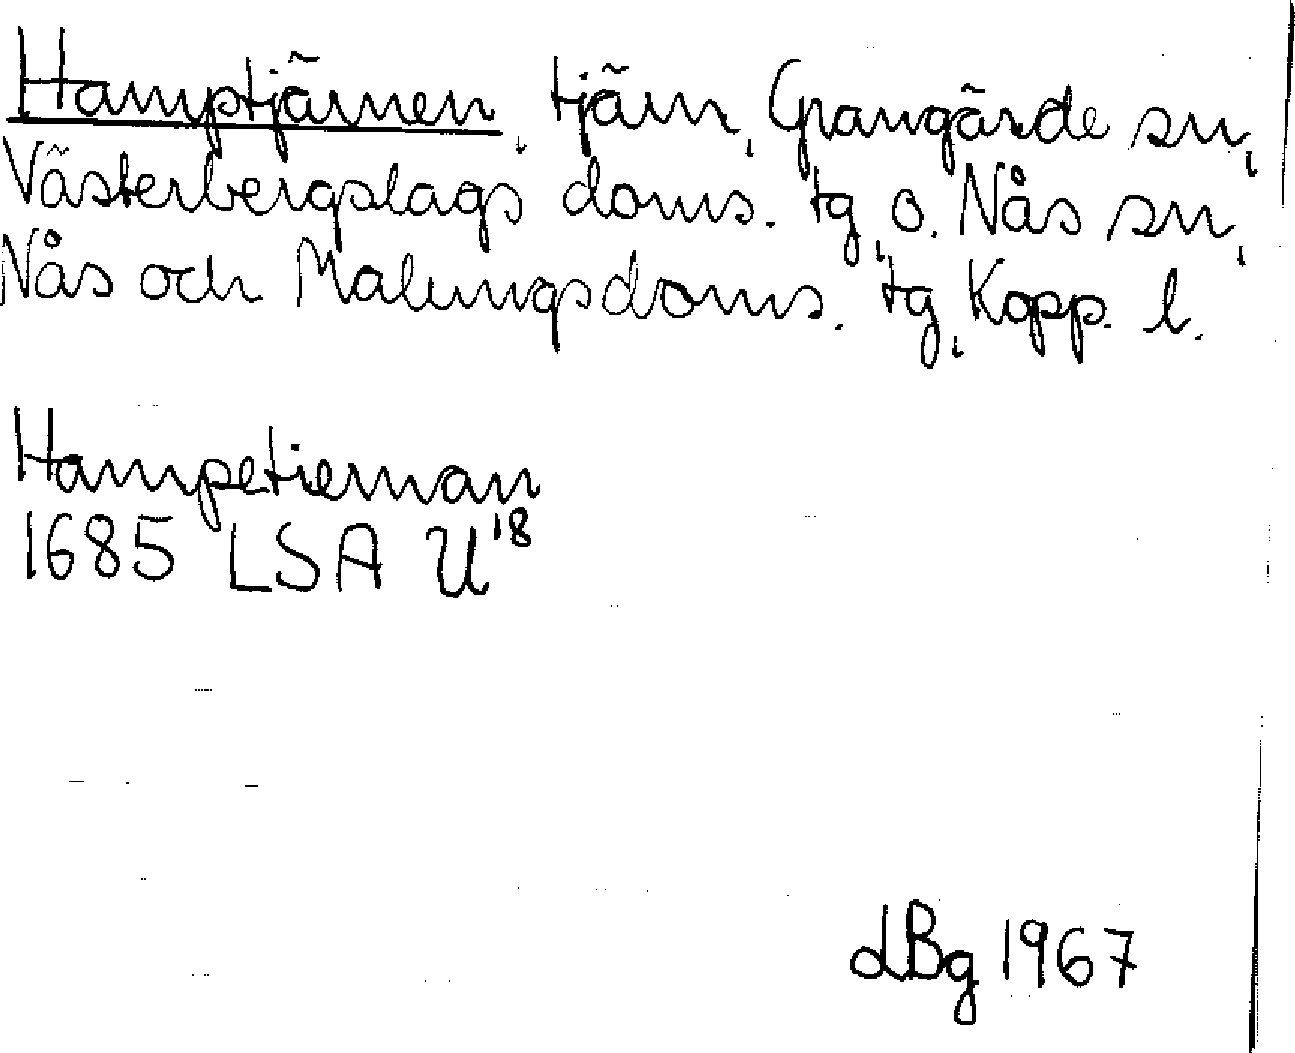 Hamptjärnen, tjärn, Grangärde sn,
Västerbergslags doms. tg, o. Nås sn,
Nås och Malungs doms. tg, Kopp. l.
Hampetiernan
1685 LSA U¹8
LBg 1967